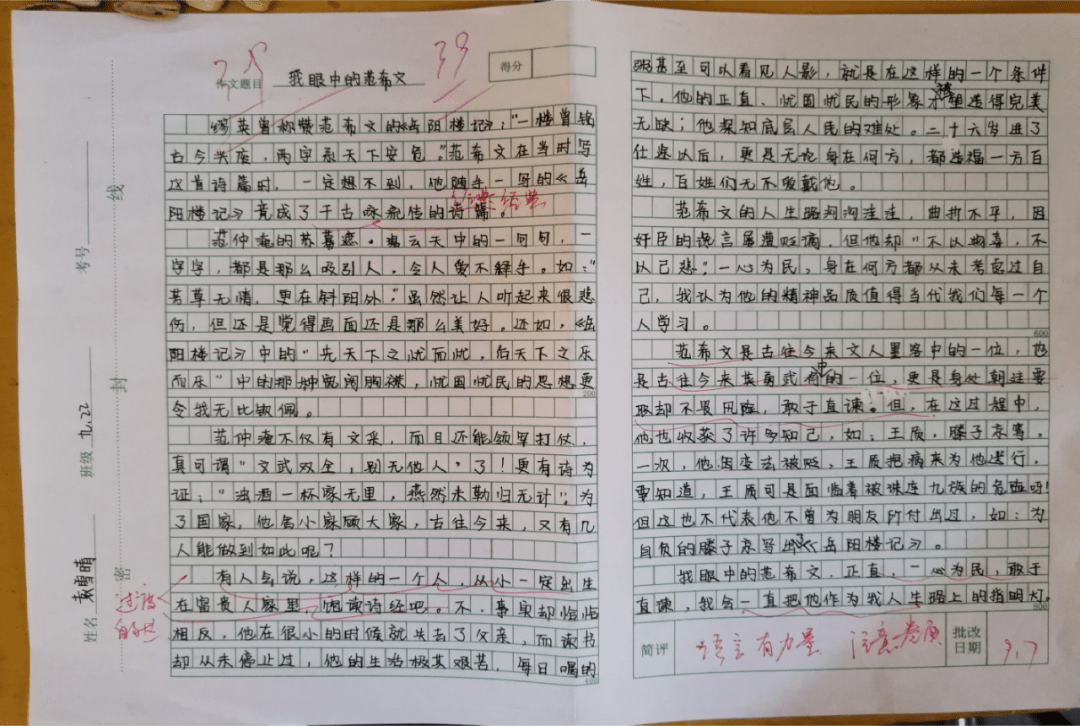 38 39
作文题目 我眼中的范希文
得分
缪英曾称赞范希文的《岳阳楼记》：“一楼曾铭
古今失夜，两字系天下安危。”范希文在当时写
这首诗篇时，一定想不到，他随手一写的《岳
阳楼记》竟成了千古咏流传的诗篇。
经典
范仲淹的苏幕遮·碧云天中的一句句，一
字字，都是那么吸引人，令人爱不释手。如：“
芳草无情，更在斜阳外。”虽然让人听起来很悲
伤，但还是觉得画面还是那么美好。还如，《岳
阳楼记》中的“先天下之忧而忧，后天下之乐
而乐”中的那种宽阔胸襟，忧国忧民的思想更
200
令我无比钦佩。
范仲淹不仅有文采，而且还能领军打仗，
真可谓“文武双全，别无他人”了！更有诗为
证：“浊酒一杯家万里，燕然未勒归无计”。为
了国家，他舍小家顾大家，古往今来，又有几
人能做到如此呢？
有人会说，这样的一个人，从小一定出生
在富贵人家里，饱读诗经吧。不，事实却恰恰
相反，他在很小的时候就失去了父亲，而读书
却从未停止过，他的生活极其艰苦，每日喝的
400
过渡
自然
线 封 密
考号
班级 九.22
姓名 袁雪晴
粥甚至可以看见人影，就是在这样的一个条件
下，他的正直、忧国忧民的形象才塑造得完美
无缺；他深知底层人民的难处。二十六岁进了
仕途以后，更是无论身在何方，都造福一方百
姓，百姓们无不爱戴他。
范希文的人生路沟沟洼洼，曲折不平，因
奸臣的谗言屡遭贬谪，但他却“不以物喜，不
以己悲”，一心为民，身在何方都从未考虑过自
己，我认为他的精神品质值得当代我们每一个
人学习。
600
范希文是古往今来文人墨客中的一位，也
是古往今来英勇武将中的一位，更是身处朝廷要
职却不畏风险，敢于直谏。但，在这过程中，
他也收获了许多知己，如：王质，滕子京等。
一次，他因变法被贬，王质抱病来为他送行。
要知道，王质可是面临着被株连九族的危险呀！
但这也不代表他不曾为朋友所付出过，如：为
自负的滕子京写出了《岳阳楼记》。
我眼中的范希文，正直，一心为民，敢于
直谏，我会一直把他作为我人生路上的指明灯。
800
简评 语言有力量 注意卷质
批改日期 9.7